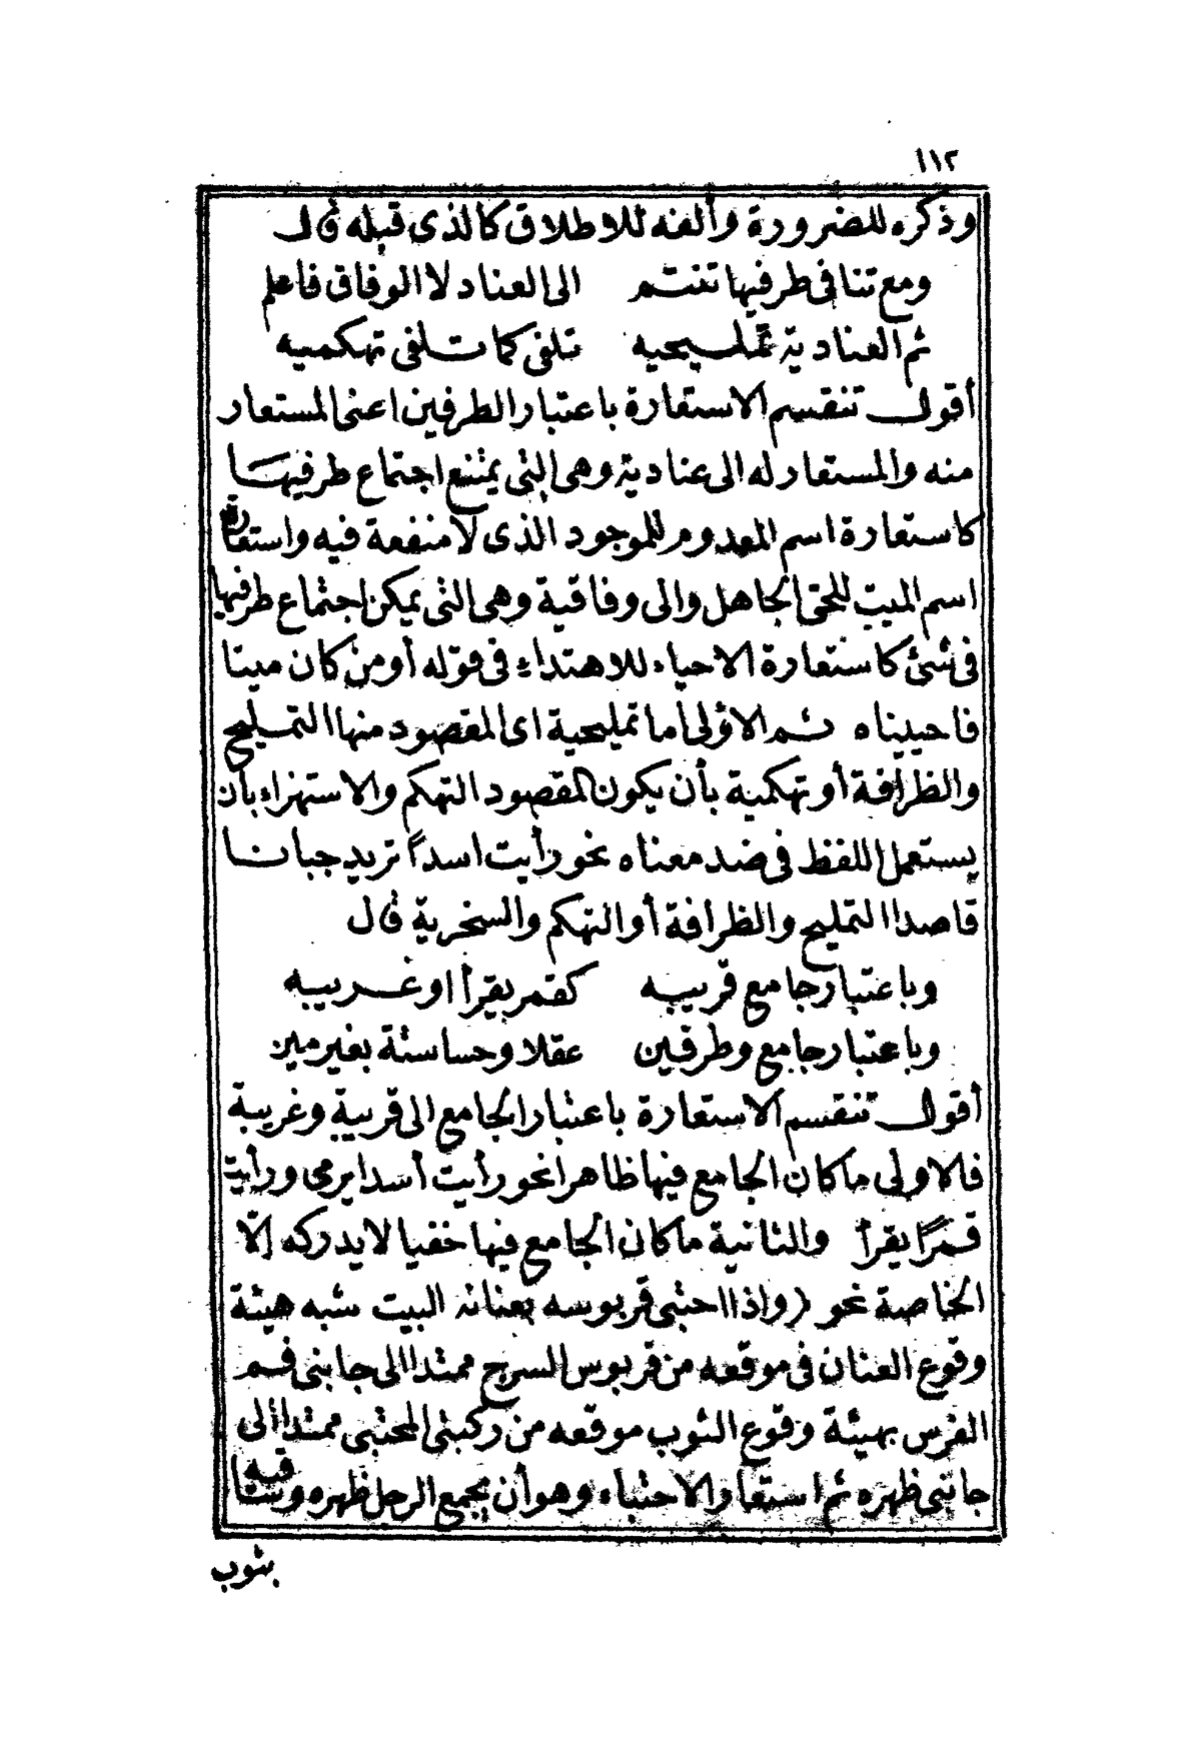 ١١٢
وذكره للضرورة وألفه للاطلاق كالذى قبله قال
ومع تنافى طرفيها تنتمـ الى العناد لا الوفاق فاعلم
ثم العنادية تمليحيه تلفى كما تلفى تهكميه
أقول تنقسم الاستعارة باعتبار الطرفين اعنى المستعار
منه والمستعار له الى عنادية وهى التى يمتنع اجتماع طرفيها
كاستعارة اسم المعدوم للموجود الذى لا منفعة فيه واستعارة
اسم الميت للحى الجاهل والى وفاقية وهى التى يمكن اجتماع طرفيها
فى شئ كاستعارة الاحياء للاهتداء فى قوله أومن كان ميتا
فاحييناه ثم الاولى أما تمليحية اى المقصود منها التمليح
والظرافة أو تهكمية بأن يكون المقصود التهكم والاستهزاء بأن
يستعمل اللفظ فى ضد معناه نحو رأيت اسداً تريد جبانا
قاصدا التمليح والظرافة أو التهكم والسخرية قال
وباعتبار جامع قريبه كقمر يقرأ او غريبه
وباعتبار جامع وطرفين عقلا وحسا ستة بغير مين
أقول تنقسم الاستعارة باعتبار الجامع الى قريبة وغريبة
فالاولى ما كان الجامع فيها ظاهرا نحو رأيت أسدا يرمى ورأيت
قمرًا يقرأ والثانية ما كان الجامع فيها خفيا لا يدركه إلّا
الخاصة نحو (واذا احتبى قربوسه بعنانه البيت شبه هيئة
وقوع العنان فى موقعه من قربوس السرج ممتدا الى جانبى فم
الفرس بهيئة وقوع الثوب موقعه من ركبتى المحتبى ممتدا الى
جانبى ظهره ثم استعار الاحتباء وهو أن يجمع الرجل ظهره وساقيه
بثوب